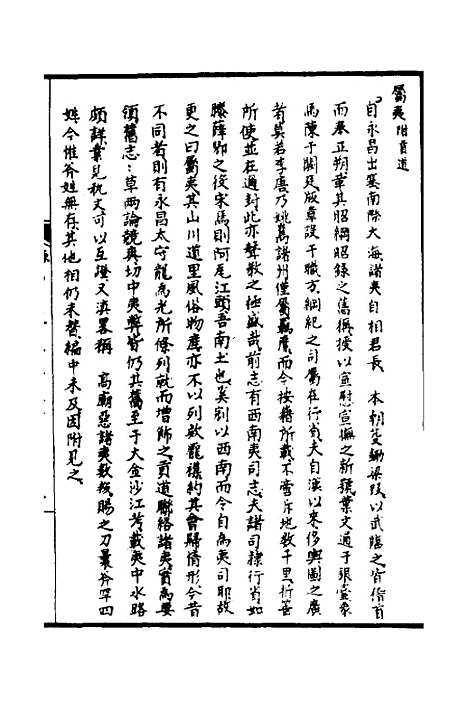 屬夷附貢道
自永昌出塞南際大海諸夷自相君長　本朝芟鋤梁段以武臨之皆俯首
而奉正朔革其昭綱昭錄之舊稱授以宣慰宣撫之新號葉文通于銀臺象
馬陳于闕廷版章設于職方綱紀之司屬在行省夫自滇以來侈輿圖之廣
者莫若李唐乃姚嶲諸州僅屬羈縻而今按籍所載不啻斥地數千里折箠
所使並在邇封此亦聲教之極盛哉前志有西南夷司志夫諸司隸行省如
滕薛郳之役宋焉則阿瓦江頭吾南土也奚別以西南而今自為夷司耶故
更之曰屬夷其山川道里風俗物產亦不以列敘龎襍約其會歸情形今昔
不同者則有永昌太守龍為光所條列就而增飾之貢道聯絡諸夷實為要
領舊志二草兩論競與切中夷弊皆仍其舊至于大金沙江考載夷中水路
頗詳葉兒秔丈可以互證又滇畧稱　高廟惡諸夷數叛賜之刀曩斧罕四
姓今惟斧姓無存其他相仍未替編中未及因附見之